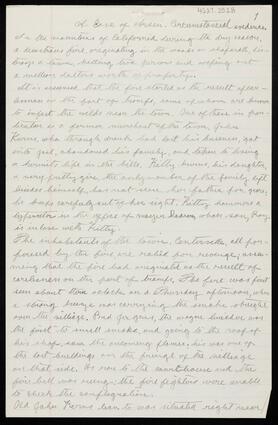 4157.2018
1
A Case of Arson. Circumstantial evidence
In the mountains of California during the dry season,
a disastrous fire, originating in the woods or chaparral, des-
troys a town, killing two persons and wiping out
a million dollars worth of property.
It is assumed that the fire started as the result of care-
lessness on the part of tramps, some of whom are known
to infest the wilds near the town. One of these in par-
ticular is a former merchant of the town, John
Kerns, who through drink had lost his business, got
into jail, abandoned his family, and taken to living
a hermit's life in the hills. Kitty Kerns, his daughter,
a very pretty girl, the only member of the family left
besides himself, has not seen her father for years,
he keeps carefully out of her sight. Kitty hammers a
typewriter in the office of
whose son, Roy,
is in love with Kitty.
The inhabitants of the town, Centerville, all pur-
posed by the fire are
upon revenge, assu-
ming that the fire had originated as the result of
carelessness on the part of tramps. The fire was first
seen about two o'clock on a Thursday afternoon when
a strong breeze was carrying the smoke straight
over the village. Bud Ferguson, the wagon builder was
the first to smell smoke, and going to the roof of
his shop saw the oncoming flames; his was one of
the last buildings on the fringe of the village
on that side. He ran to the courthouse and the
fire bell was rung; the fire fighters were unable
to check the conflagration.
Old John Kerns' lean-to was situated right near